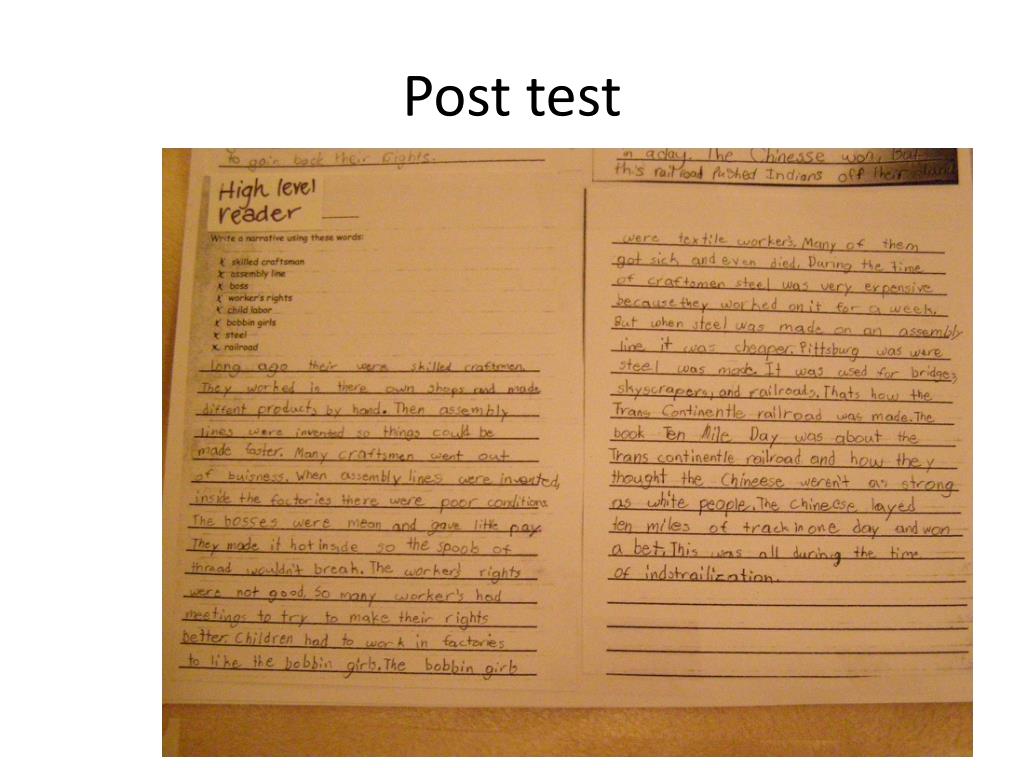 Post test
to gain back their rights.
High level
reader
Write a narrative using these words:
x skilled craftsman
x assembly line
x boss
x worker's rights
x child labor
x bobbin girls
x steel
x railroad
long ago their were skilled craftmen.
They worked in there own shops and made
diffent products by hand. Then assembly
lines were invented so things could be
made faster. Many craftsmen went out
of buisness. When assembly lines were invented,
inside the factories there were poor conditions.
The bosses were mean and gave little pay.
They made it hot inside so the spools of
thread wouldn't break. The worker's rights
were not good. So many worker's had
meetings to try to make their rights
better. Children had to work in factories
to like the bobbin girls. The bobbin girls
in a day. The Chinesse won, but
this railroad pushed Indians off their land
were textile workers. Many of them
got sick and even died. During the time
of craftsmen steel was very expensive
because they worked on it for a week.
But when steel was made on an assembly
line it was cheaper. Pittsburg was were
steel was made. It was used for bridges,
skyscrapers, and railroads. Thats how the
Trans Continentle railroad was made. The
book Ten Mile Day was about the
Trans continentle railroad and how they
thought the Chineese weren't as strong
as white people. The Chineese layed
ten miles of track in one day and won
a bet. This was all during the time
of indstrailization.